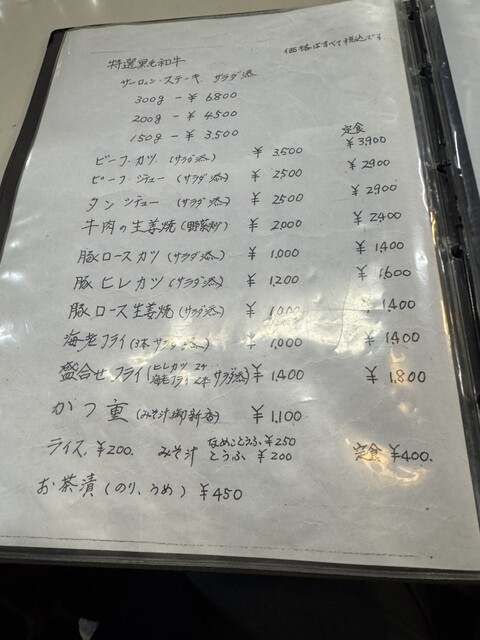 価格はすべて税込です
特選黒毛和牛
サーロイン・ステーキ サラダ添
300g - ¥ 6.800
200g - ¥ 4.500
150g - ¥ 3.500
定食
ビーフ・カツ (サラダ添) ¥ 3.500 ¥ 3900
ビーフ シチュー (サラダ添) ¥ 2500 ¥ 2900
タン シチュー (サラダ添) ¥ 2500 ¥ 2900
牛肉の生姜焼 (野菜炒) ¥ 2,000 ¥ 2,400
豚ロースカツ (サラダ添) ¥ 1,000 ¥ 1,400
豚ヒレカツ (サラダ添) ¥ 1,200 ¥ 1,600
豚ロース生姜焼 (サラダ添) ¥ 1,000 ¥ 1,400
海老フライ (3本 サラダ添) ¥ 1,000 ¥ 1,400
盛合せフライ (ヒレカツ 2ケ 海老フライ 2本 サラダ添) ¥ 1,400 ¥ 1,800
かつ重 (みそ汁 御新香) ¥ 1,100
ライス, ¥200. みそ汁 なめことうふ, ¥250 とうふ ¥200 定食 ¥400.
お茶漬 (のり、うめ) ¥450